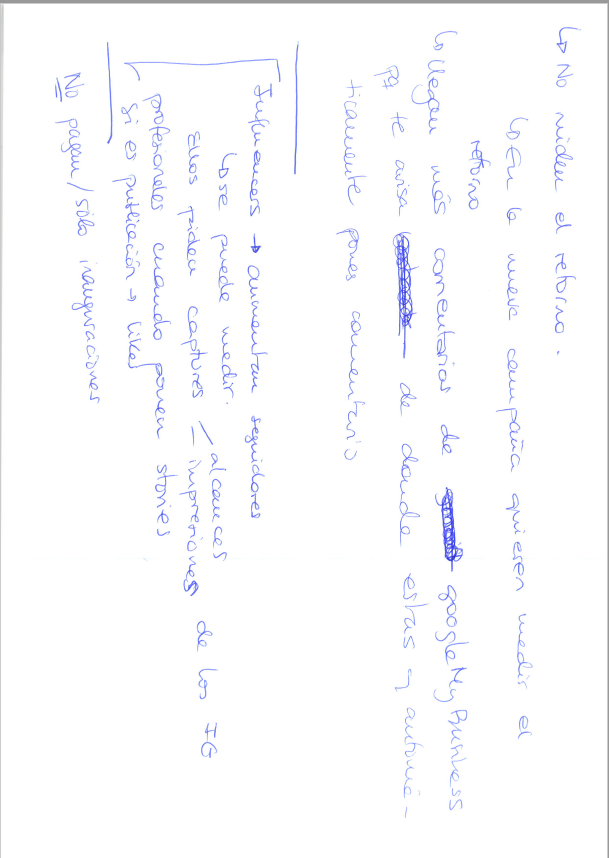 ↳ No miden el retorno.
↳ En la nueva campaña quieren medir el
retorno
↳ llegan más comentarios de googleMyBusiness
pq te avisa de donde estas y automá-
ticamente pones comentaris
Influencers → aumentan seguidores
↳ se puede medir.
Ellos piden captures alcances
impresiones de los IG
profesionales cuando ponen stories
si es publicación → likes
No pagan / sólo inauguraciones